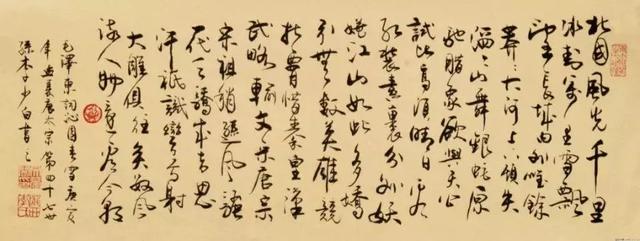 北國風光千里
冰封萬里雪飄
望長城內外惟餘
莽々大河上下頓失
滔々山舞銀蛇原
馳臘象欲與天公
試比高須晴日看
紅裝素裹分外妖
嬈江山如此多嬌
引無數英雄競
折腰惜秦皇漢
武略輸文采唐宗
宋祖稍遜風騷一
代天驕成吉思
汗祇識彎弓射
大雕俱往矣數風
流人物還看今朝
毛澤東詞沁園春雪庚寅
年孟夏唐太宗第四十七世
孫木子少白書之